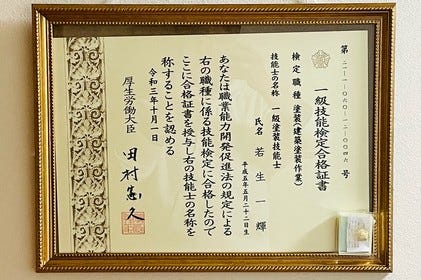 第二一-一-〇六〇-一二-〇〇四六号
一級技能検定合格証書
検定職種 塗装(建築塗装作業)
技能士の名称 一級塗装技能士
氏名 若生一輝
平成五年五月二十二日生
あなたは職業能力開発促進法の規定による
右の職種に係る技能検定に合格したので
ここに合格証書を授与し右の技能士の名称を
称することを認める
令和三年十月一日
厚生労働大臣 田村憲久